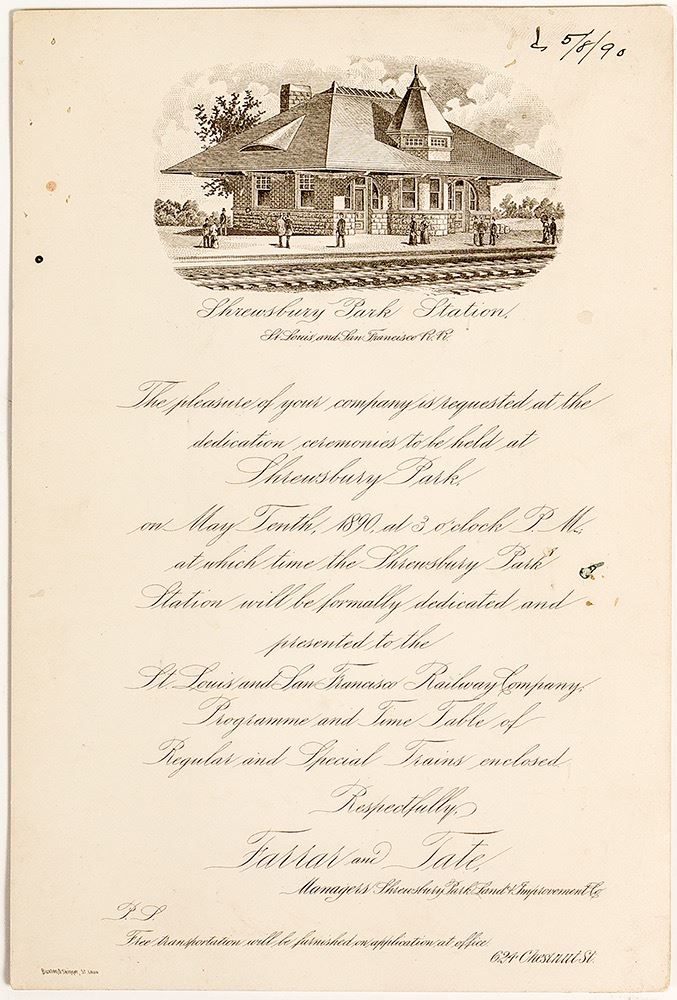 5/8/90
Shrewsbury Park Station,
St Louis and San Francisco R.R.
The pleasure of your company is requested at the
dedication ceremonies to be held at
Shrewsbury Park,
on May Tenth, 1890, at 3 o'clock P.M.,
at which time the Shrewsbury Park
Station will be formally dedicated and
presented to the
St. Louis and San Francisco Railway Company.
Programme and Time Table of
Regular and Special Trains enclosed
Respectfully,
Farrar and Tate,
Managers Shrewsbury Park Land & Improvement Co
P.S.
Free transportation will be furnished on application at office
624 Chestnut St.
Buxton & Skinner, St. Louis